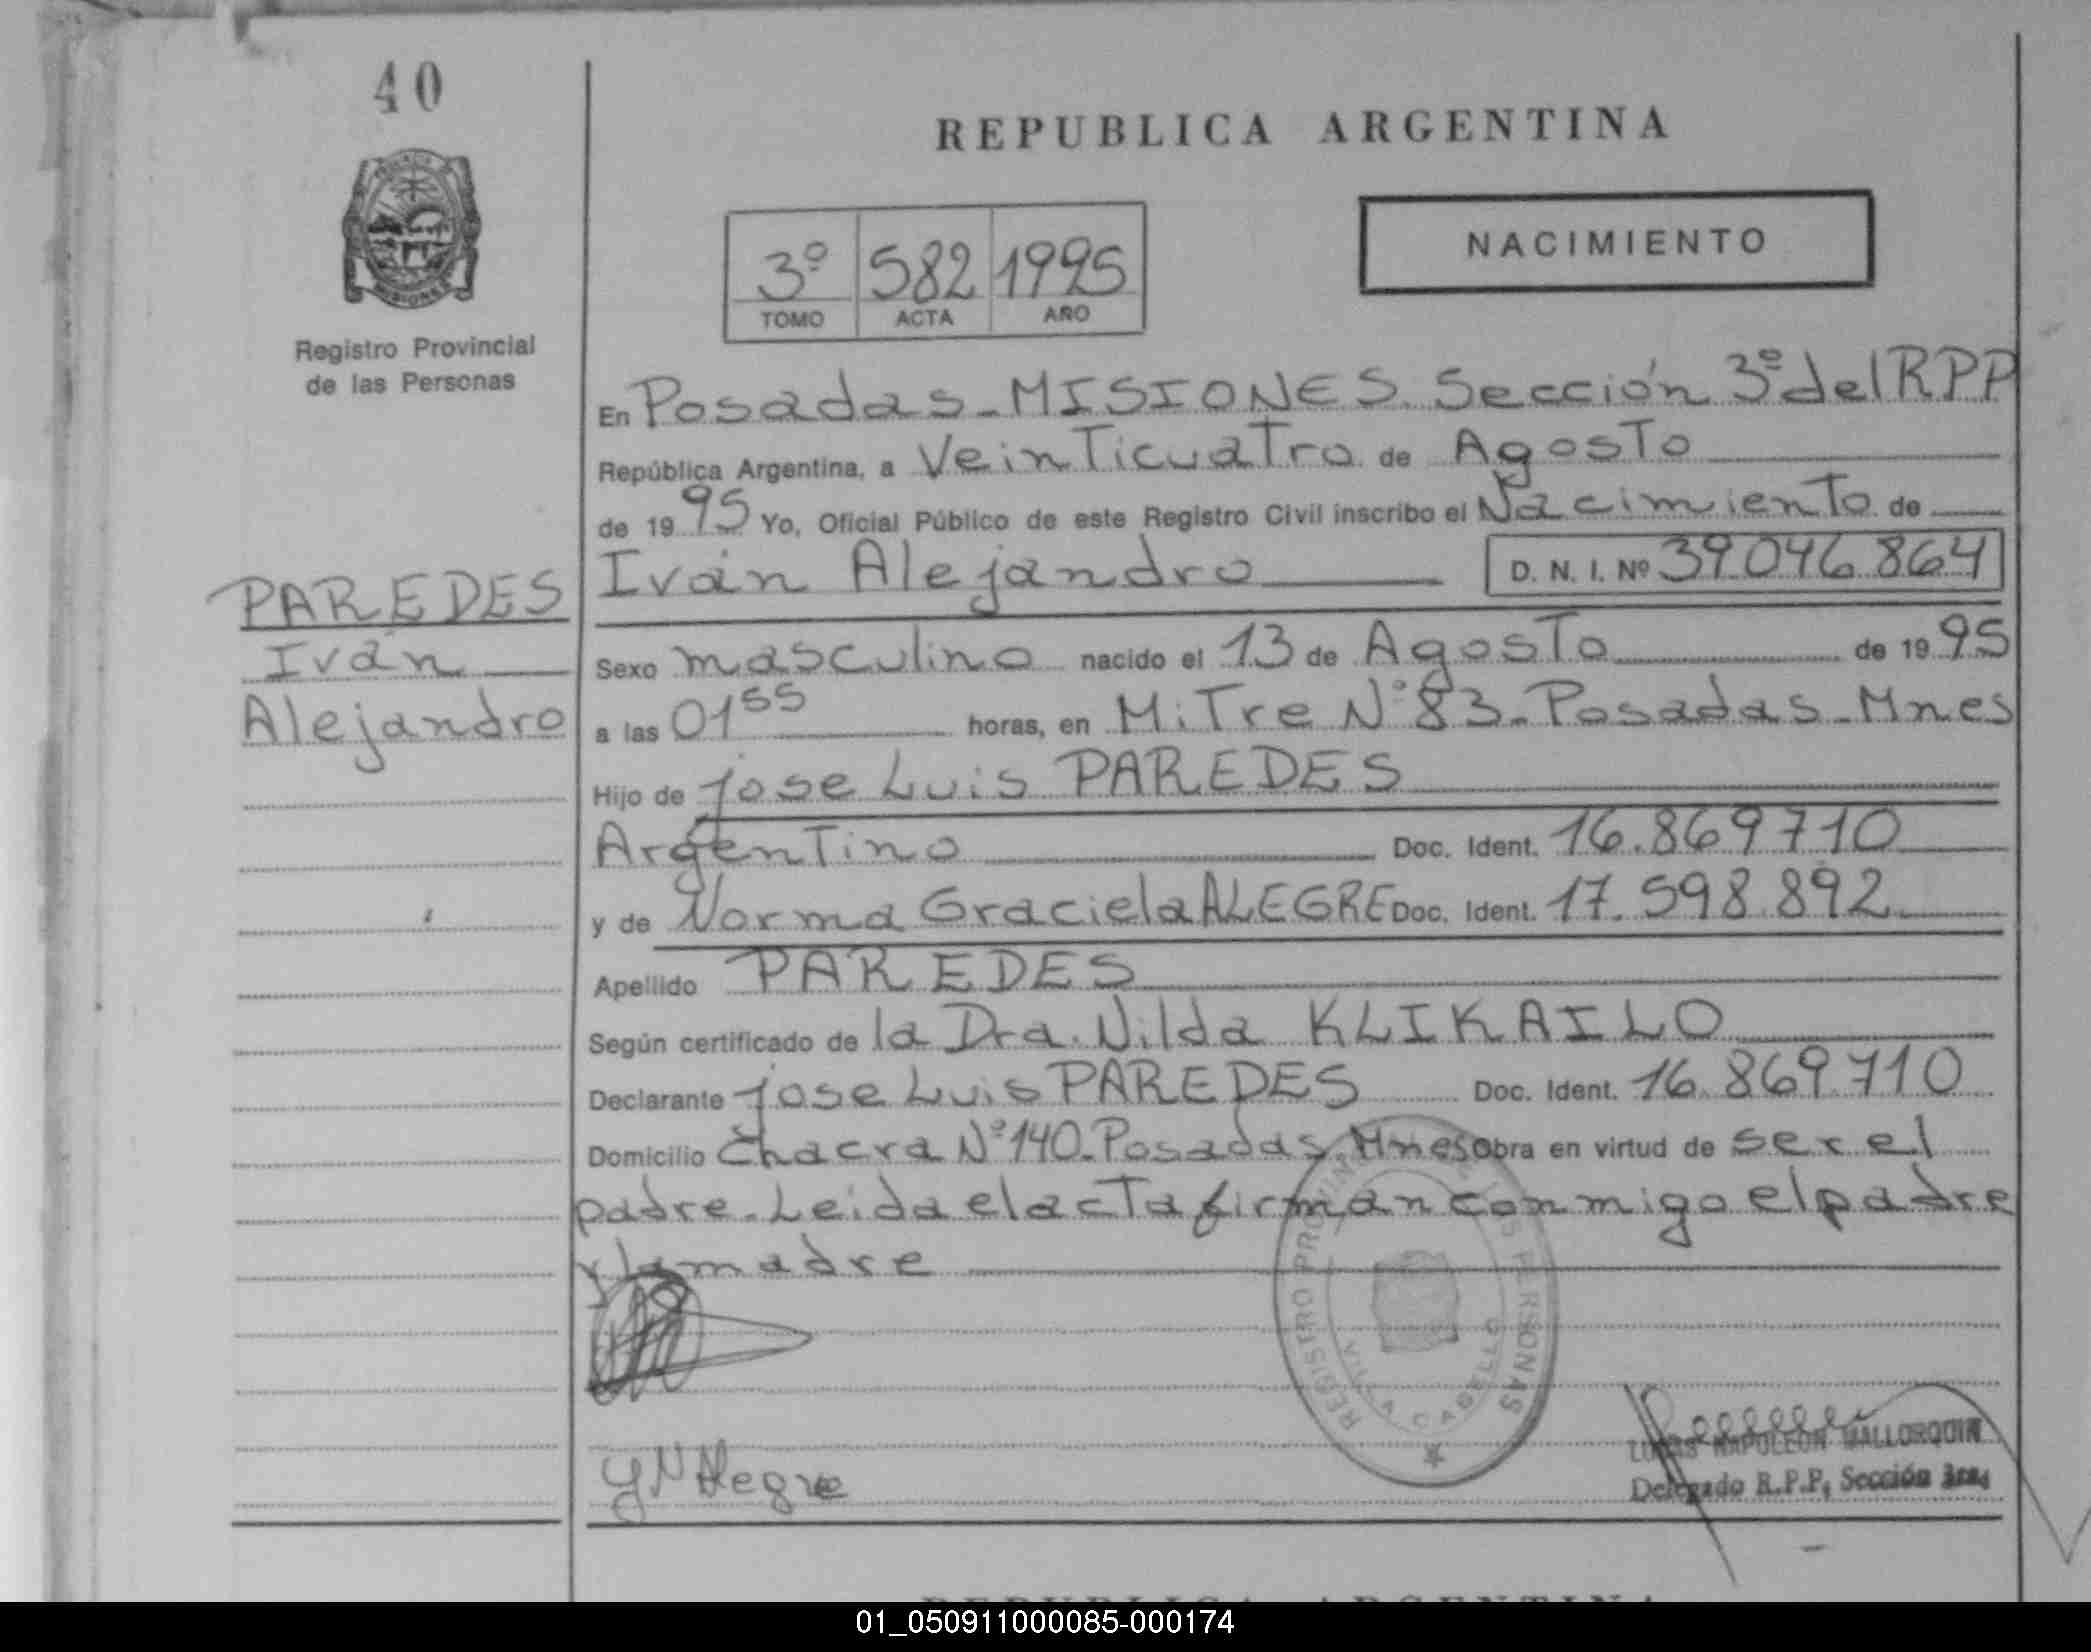 40
REPUBLICA ARGENTINA
NACIMIENTO
3º 582 1995
TOMO ACTA AÑO
MISIONES
Registro Provincial
de las Personas
En Posadas - MISIONES. Sección 3º del RPP
República Argentina, a Veinticuatro de Agosto
de 1995 Yo, Oficial Público de este Registro Civil inscribo el Nacimiento de
Iván Alejandro D. N. I. Nº 39.046.864
PAREDES
Iván
Alejandro
Sexo masculino nacido el 13 de Agosto de 1995
a las 01 55 horas, en Mitre Nº 83 - Posadas - Mnes
Hijo de jose Luis PAREDES
Argentino Doc. Ident. 16.869710
y de Norma Graciela ALEGRE Doc. Ident. 17.598.892
Apellido PAREDES
Según certificado de la Dra. Nilda KLIKAILO
Declarante jose Luis PAREDES Doc. Ident. 16.869.710
Domicilio Chacra Nº 140 - Posadas. Mnes Obra en virtud de ser el
padre - Leida el acta firman conmigo el padre
y la madre
REGISTRO PROVINCIAL DE LAS PERSONAS
VILLA CABELLO
Alegre
NAPOLEON MALLORQUIN
Delegado R.P.P. Sección 3ra.
REPUBLICA ARGENTINA
01_050911000085-000174